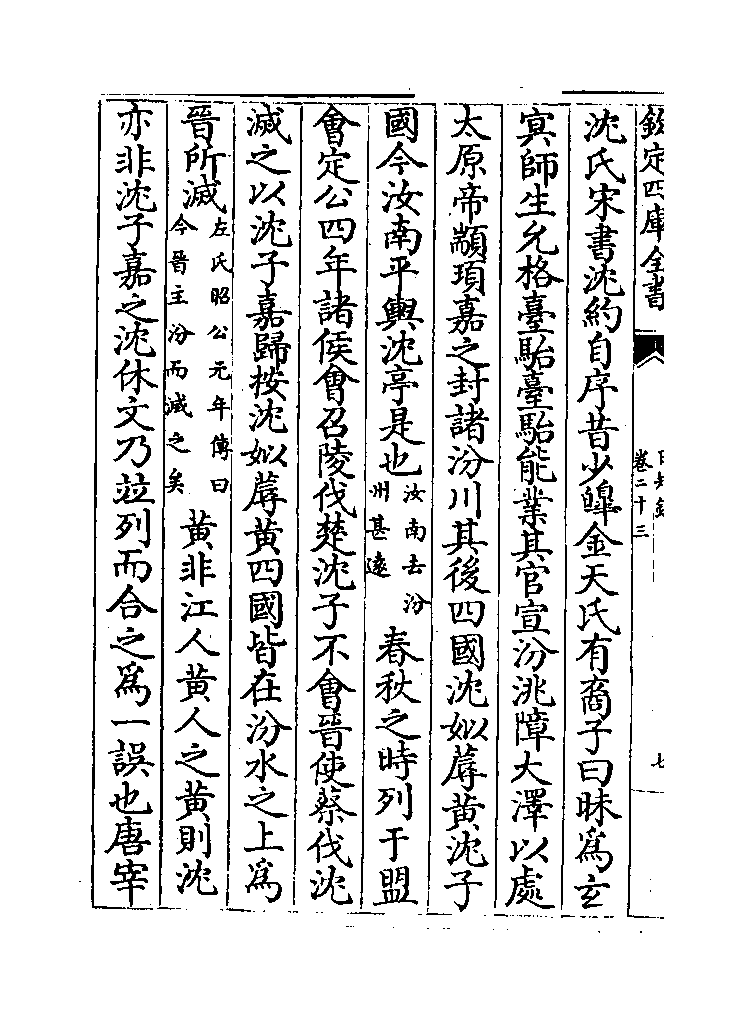 欽定四庫全書
日知錄
卷二十三
七
沈氏宋書沈約自序昔少皥金天氏有裔子曰昧為玄
㝠師生允格臺駘臺駘能業其官宣汾洮障大澤以處
太原帝顓頊嘉之封諸汾川其後四國沈姒蓐黄沈子
國今汝南平輿沈亭是也汝南去汾州甚遠春秋之時列于盟
會定公四年諸侯會召陵伐楚沈子不會晉使蔡伐沈
滅之以沈子嘉歸按沈姒蓐黄四國皆在汾水之上為
晉所滅左氏昭公元年傳曰今晉主汾而滅之矣黄非江人黄人之黄則沈
亦非沈子嘉之沈休文乃竝列而合之為一誤也唐宰